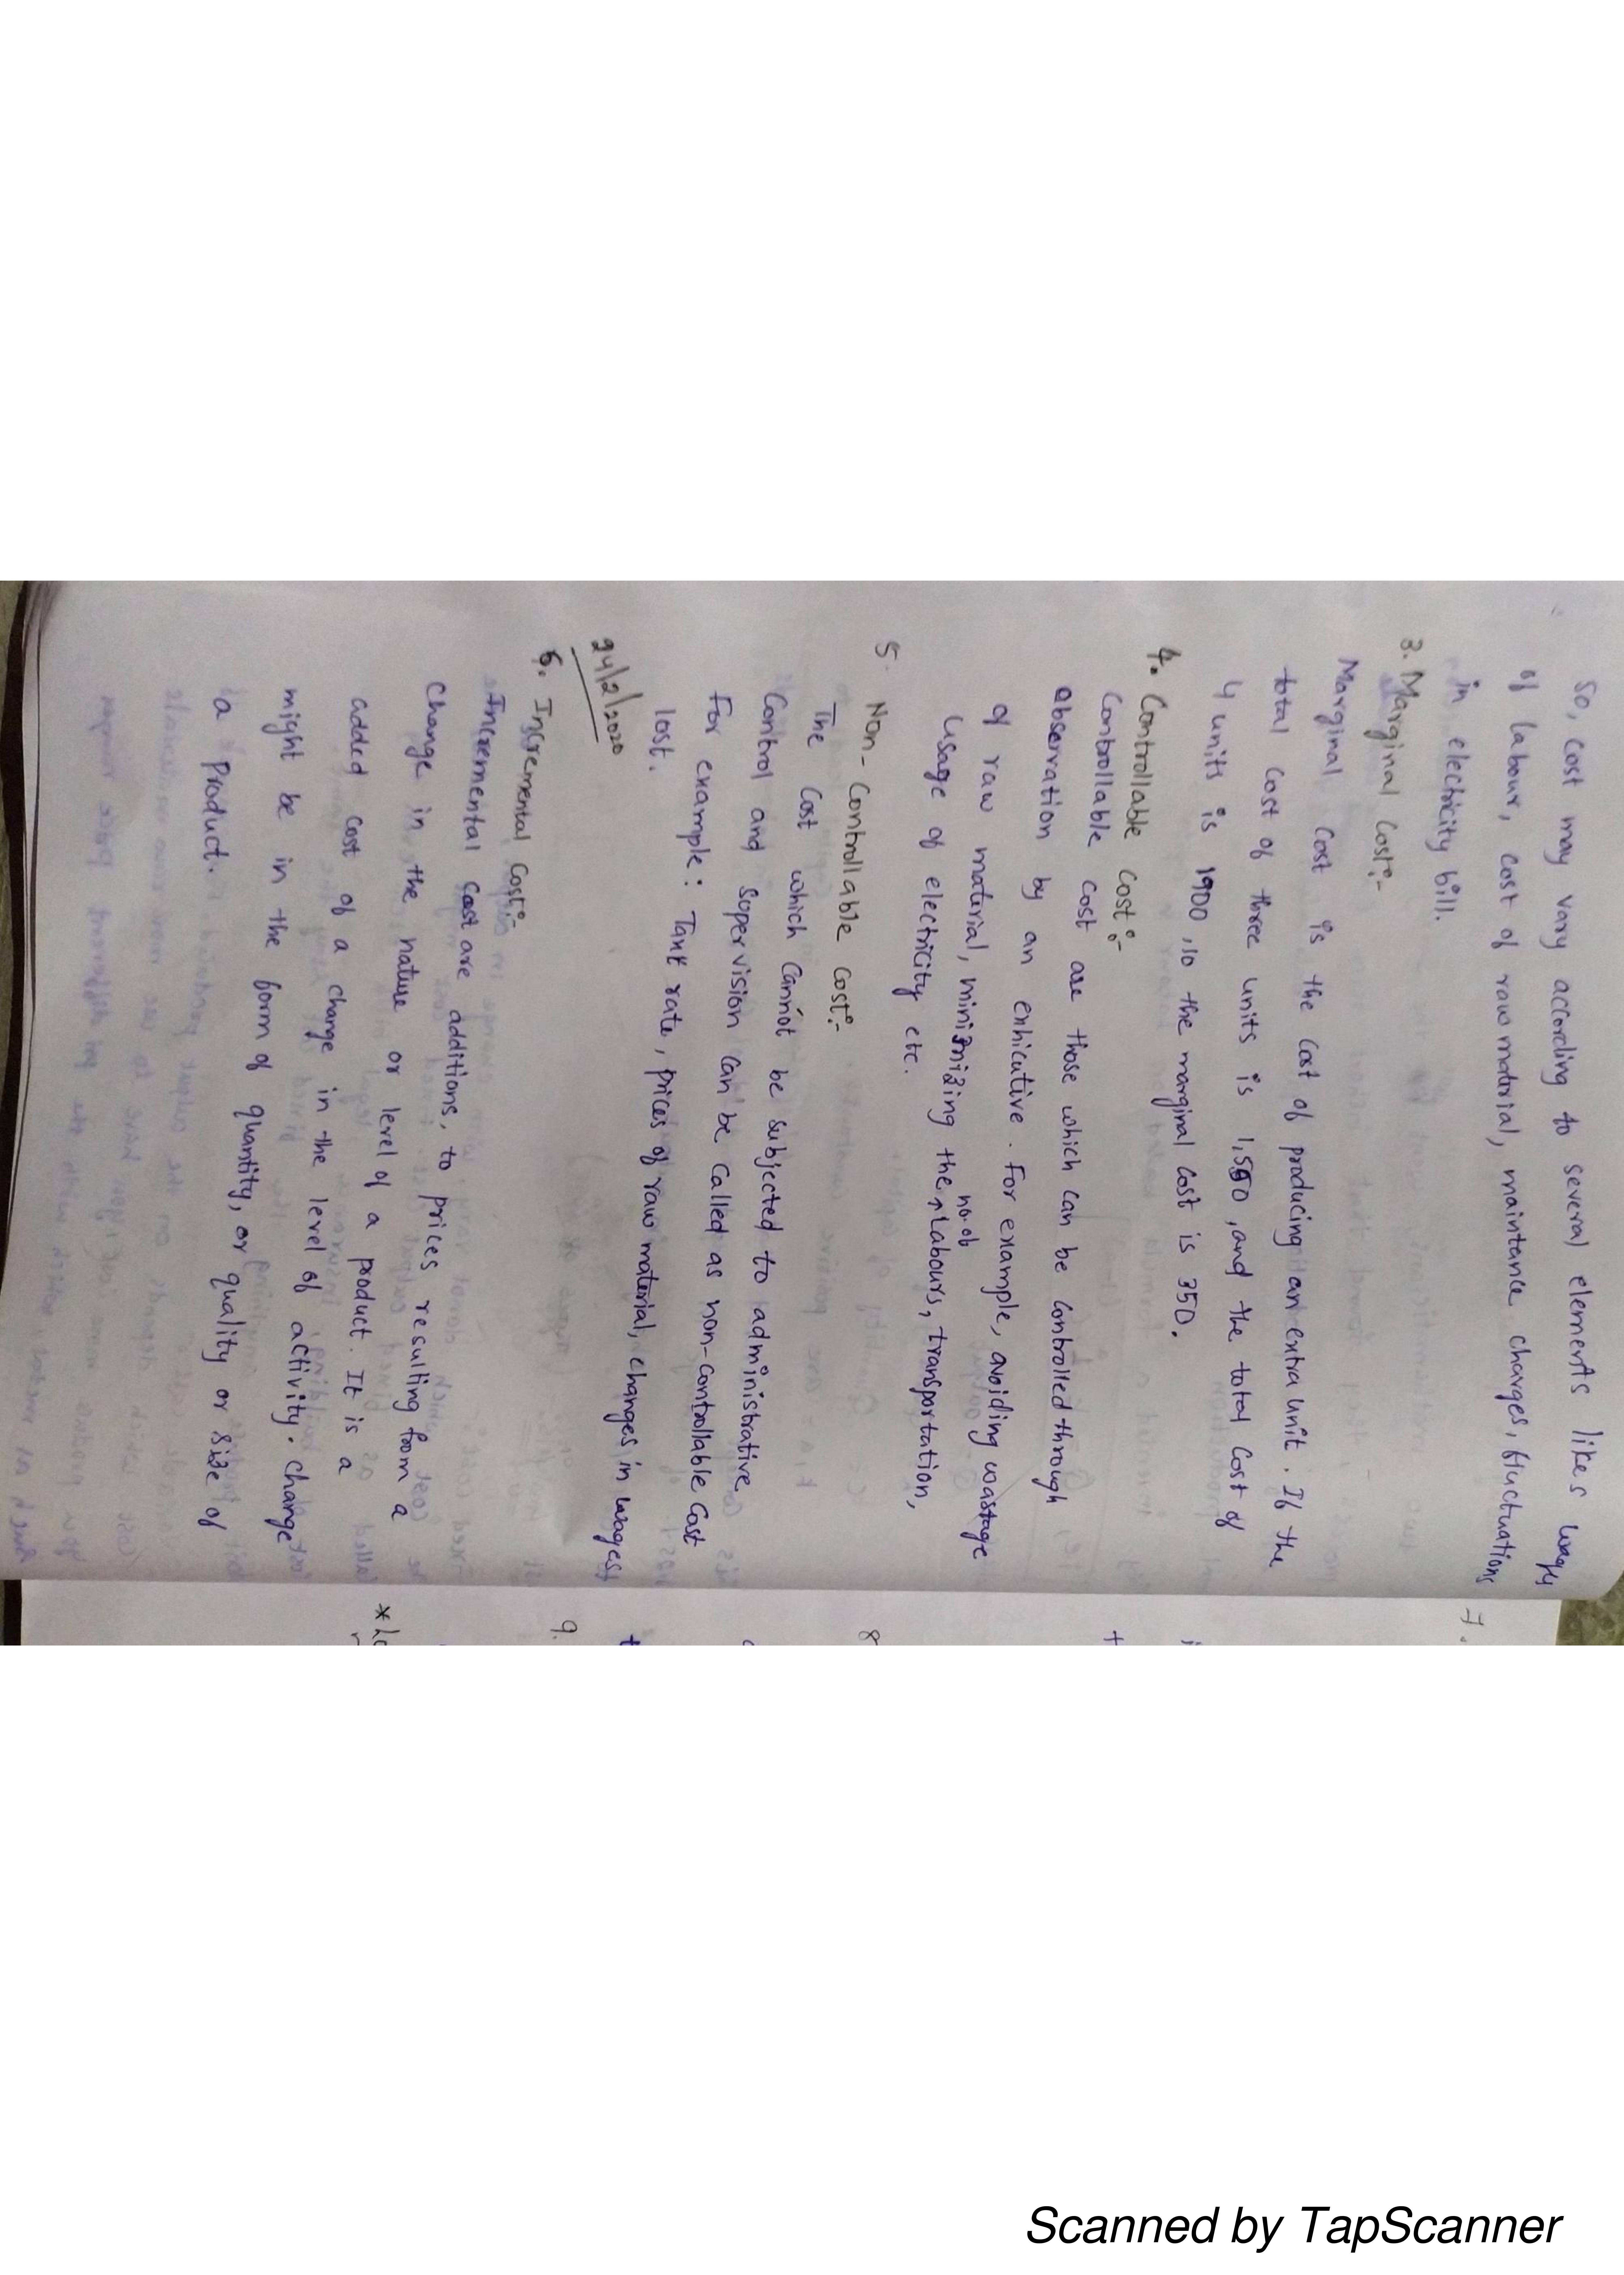 So, cost may vary according to several elements likes wages
of labour, cost of raw material, maintance charges, fluctuations
in electricity bill.
3. Marginal Cost:-
Marginal Cost is the Cost of producing an extra unit. If the
total Cost of three units is 1,550, and the total Cost of
4 units is 1900, so the marginal cost is 350.
4. Controllable cost:-
Controllable cost are those which can be controlled through
observation by an exhicutive. For example, avoiding wastage
of raw material, minimizing the no. of Labours, transportation,
usage of electricity etc.
5. Non-Controllable Cost:-
The Cost which Cannot be subjected to administrative
Control and Supervision can be called as non-controllable Cost
For example: Tax rate, prices of raw material, changes in wages,
lost.
24/2/2020
6. Incremental Cost:-
Incremental Cost are additions, to prices resulting from a
Change in the nature or level of a product. It is a
added cost of a change in the level of activity. change
might be in the form of quantity, or quality or side of
a product.
7.
8
9.
Scanned by TapScanner